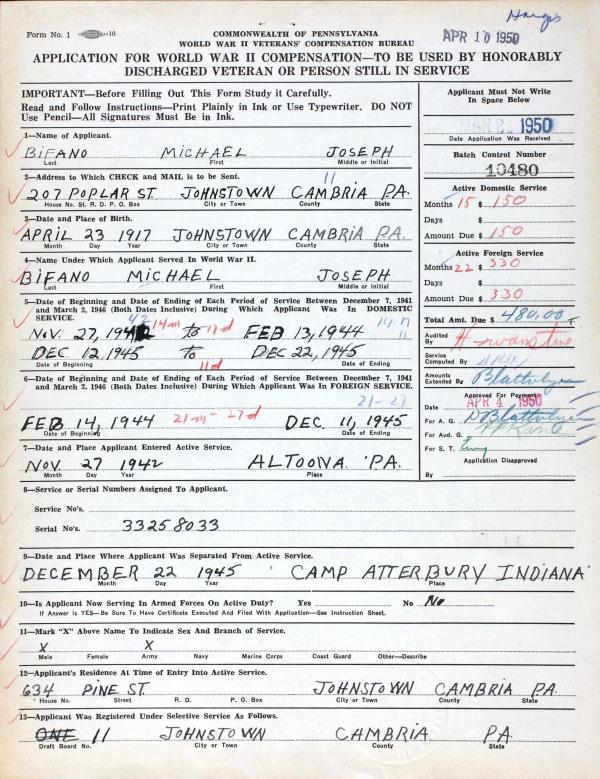 Hargis
Form No. 1 -10
COMMONWEALTH OF PENNSYLVANIA
APR 10 1950
WORLD WAR II VETERANS' COMPENSATION BUREAU
APPLICATION FOR WORLD WAR II COMPENSATION—TO BE USED BY HONORABLY
DISCHARGED VETERAN OR PERSON STILL IN SERVICE
IMPORTANT—Before Filling Out This Form Study it Carefully.
Read and Follow Instructions—Print Plainly in Ink or Use Typewriter. DO NOT
Use Pencil—All Signatures Must Be in Ink.
1—Name of Applicant.
BIFANO MICHAEL JOSEPH
Last First Middle or Initial
2—Address to Which CHECK and MAIL is to be Sent.
11
207 POPLAR ST. JOHNSTOWN CAMBRIA PA.
House No. St. R. D. P. O. Box City or Town County State
3—Date and Place of Birth.
APRIL 23 1917 JOHNSTOWN CAMBRIA PA.
Month Day Year City or Town County State
4—Name Under Which Applicant Served In World War II.
BIFANO MICHAEL JOSEPH
Last First Middle or Initial
5—Date of Beginning and Date of Ending of Each Period of Service Between December 7, 1941
and March 2, 1946 (Both Dates Inclusive) During Which Applicant Was In DOMESTIC
SERVICE.
42 14m 17d 14 17
NOV. 27, 1942 to FEB 13, 1944 11
DEC. 12, 1945 to DEC 22, 1945
Date of Beginning Date of Ending
11d
6—Date of Beginning and Date of Ending of Each Period of Service Between December 7, 1941
and March 2, 1946 (Both Dates Inclusive) During Which Applicant Was In FOREIGN SERVICE.
21-27
FEB 14, 1944 21m-27d DEC. 11, 1945
Date of Beginning Date of Ending
7—Date and Place Applicant Entered Active Service.
NOV. 27 1942 ALTOONA PA.
Month Day Year Place
8—Service or Serial Numbers Assigned To Applicant.
Service No's.
Serial No's. 33258033
9—Date and Place Where Applicant Was Separated From Active Service.
DECEMBER 22 1945 CAMP ATTERBURY INDIANA
Month Day Year Place
10—Is Applicant Now Serving In Armed Forces On Active Duty? Yes No No
If Answer is YES—Be Sure To Have Certificate Executed And Filed With Application—See Instruction Sheet.
11—Mark "X" Above Name To Indicate Sex and Branch of Service.
X X
Male Female Army Navy Marine Corps Coast Guard Other—Describe
12—Applicant's Residence At Time of Entry Into Active Service.
634 PINE ST. JOHNSTOWN CAMBRIA PA.
House No. Street R. D. P. O. Box City or Town County State
13—Applicant Was Registered Under Selective Service As Follows.
ONE 11 JOHNSTOWN CAMBRIA PA.
Draft Board No. City or Town County State
Applicant Must Not Write
In Space Below
1950
Date Application Was Received
Batch Control Number
10480
Active Domestic Service
Months 15 $ 150
Days $
Amount Due $ 150
Active Foreign Service
Months 22 $ 330
Days $
Amount Due $ 330
Total Amt. Due $ 480.00
Audited
By
Service
Computed By
Amounts
Extended By
Approved For Payment
Date APR 4 1950
For A. G.
For Aud. G.
For S. T.
Application Disapproved
By